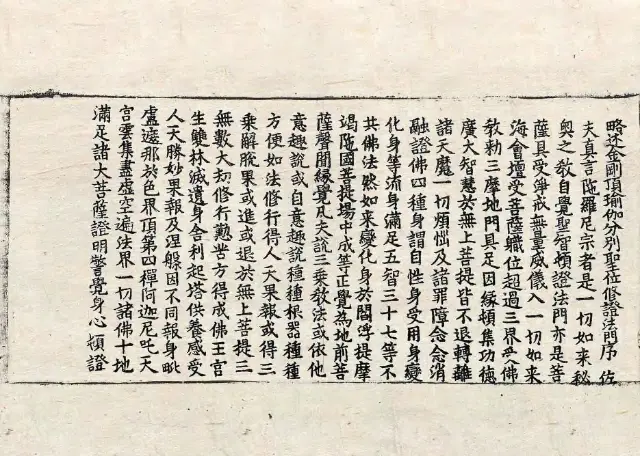 略述金剛頂瑜伽分別聖位修證法門序 佐
夫真言陁羅尼宗者是一切如來秘
奧之教自覺聖智頓證法門亦是菩
薩具受淨戒無量威儀入一切如來
海會壇受菩薩軄位超過三界受佛
教勑三摩地門具足因緣頓集功德
廣大智慧於無上菩提皆不退轉離
諸天魔一切煩惱及諸罪障念念消
融證佛四種身謂自性身受用身變
化身等流身滿足五智三十七等不
共佛法然如来變化身於閻浮提摩
竭陁國菩提場中成等正覺為地前菩
薩聲聞緣覺凡夫說三乘教法或依他
意趣說或自意趣說種種根器種種
方便如法修行得人天果報或得三
乘解脫果或進或退於無上菩提三
無數大劫修行懃苦方得成佛王宮
生雙林滅遺身舍利起塔供養感受
人天勝妙果報及涅槃因不同報身毗
盧遮那於色界頂第四禪阿迦尼吒天
宮雲集盡虛空遍法界一切諸佛十地
滿足諸大菩薩證明警覺身心頓證